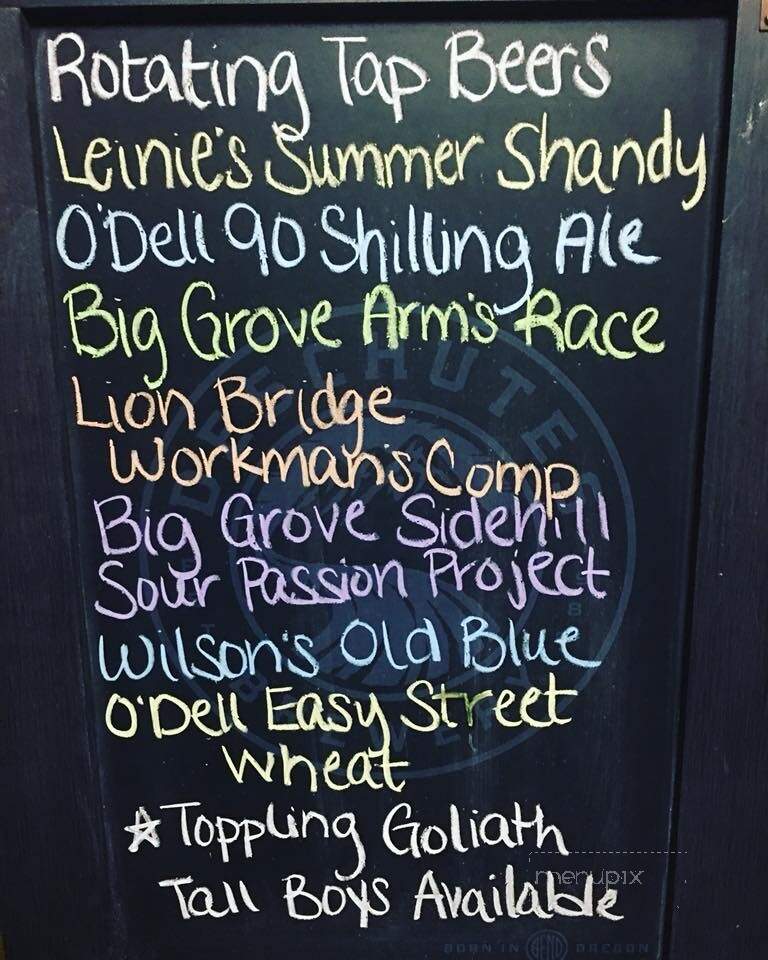 Rotating Tap Beers
Leinie's Summer Shandy
O'Dell 90 Shilling Ale
Big Grove Arm's Race
Lion Bridge
Workman's Comp
Big Grove Sidehill
Sour Passion Project
Wilson's Old Blue
O'Dell Easy Street
Wheat
☆ Toppling Goliath
Tall Boys Available
menupix
DESCHUTES
BREWERY
BORN IN BEND OREGON